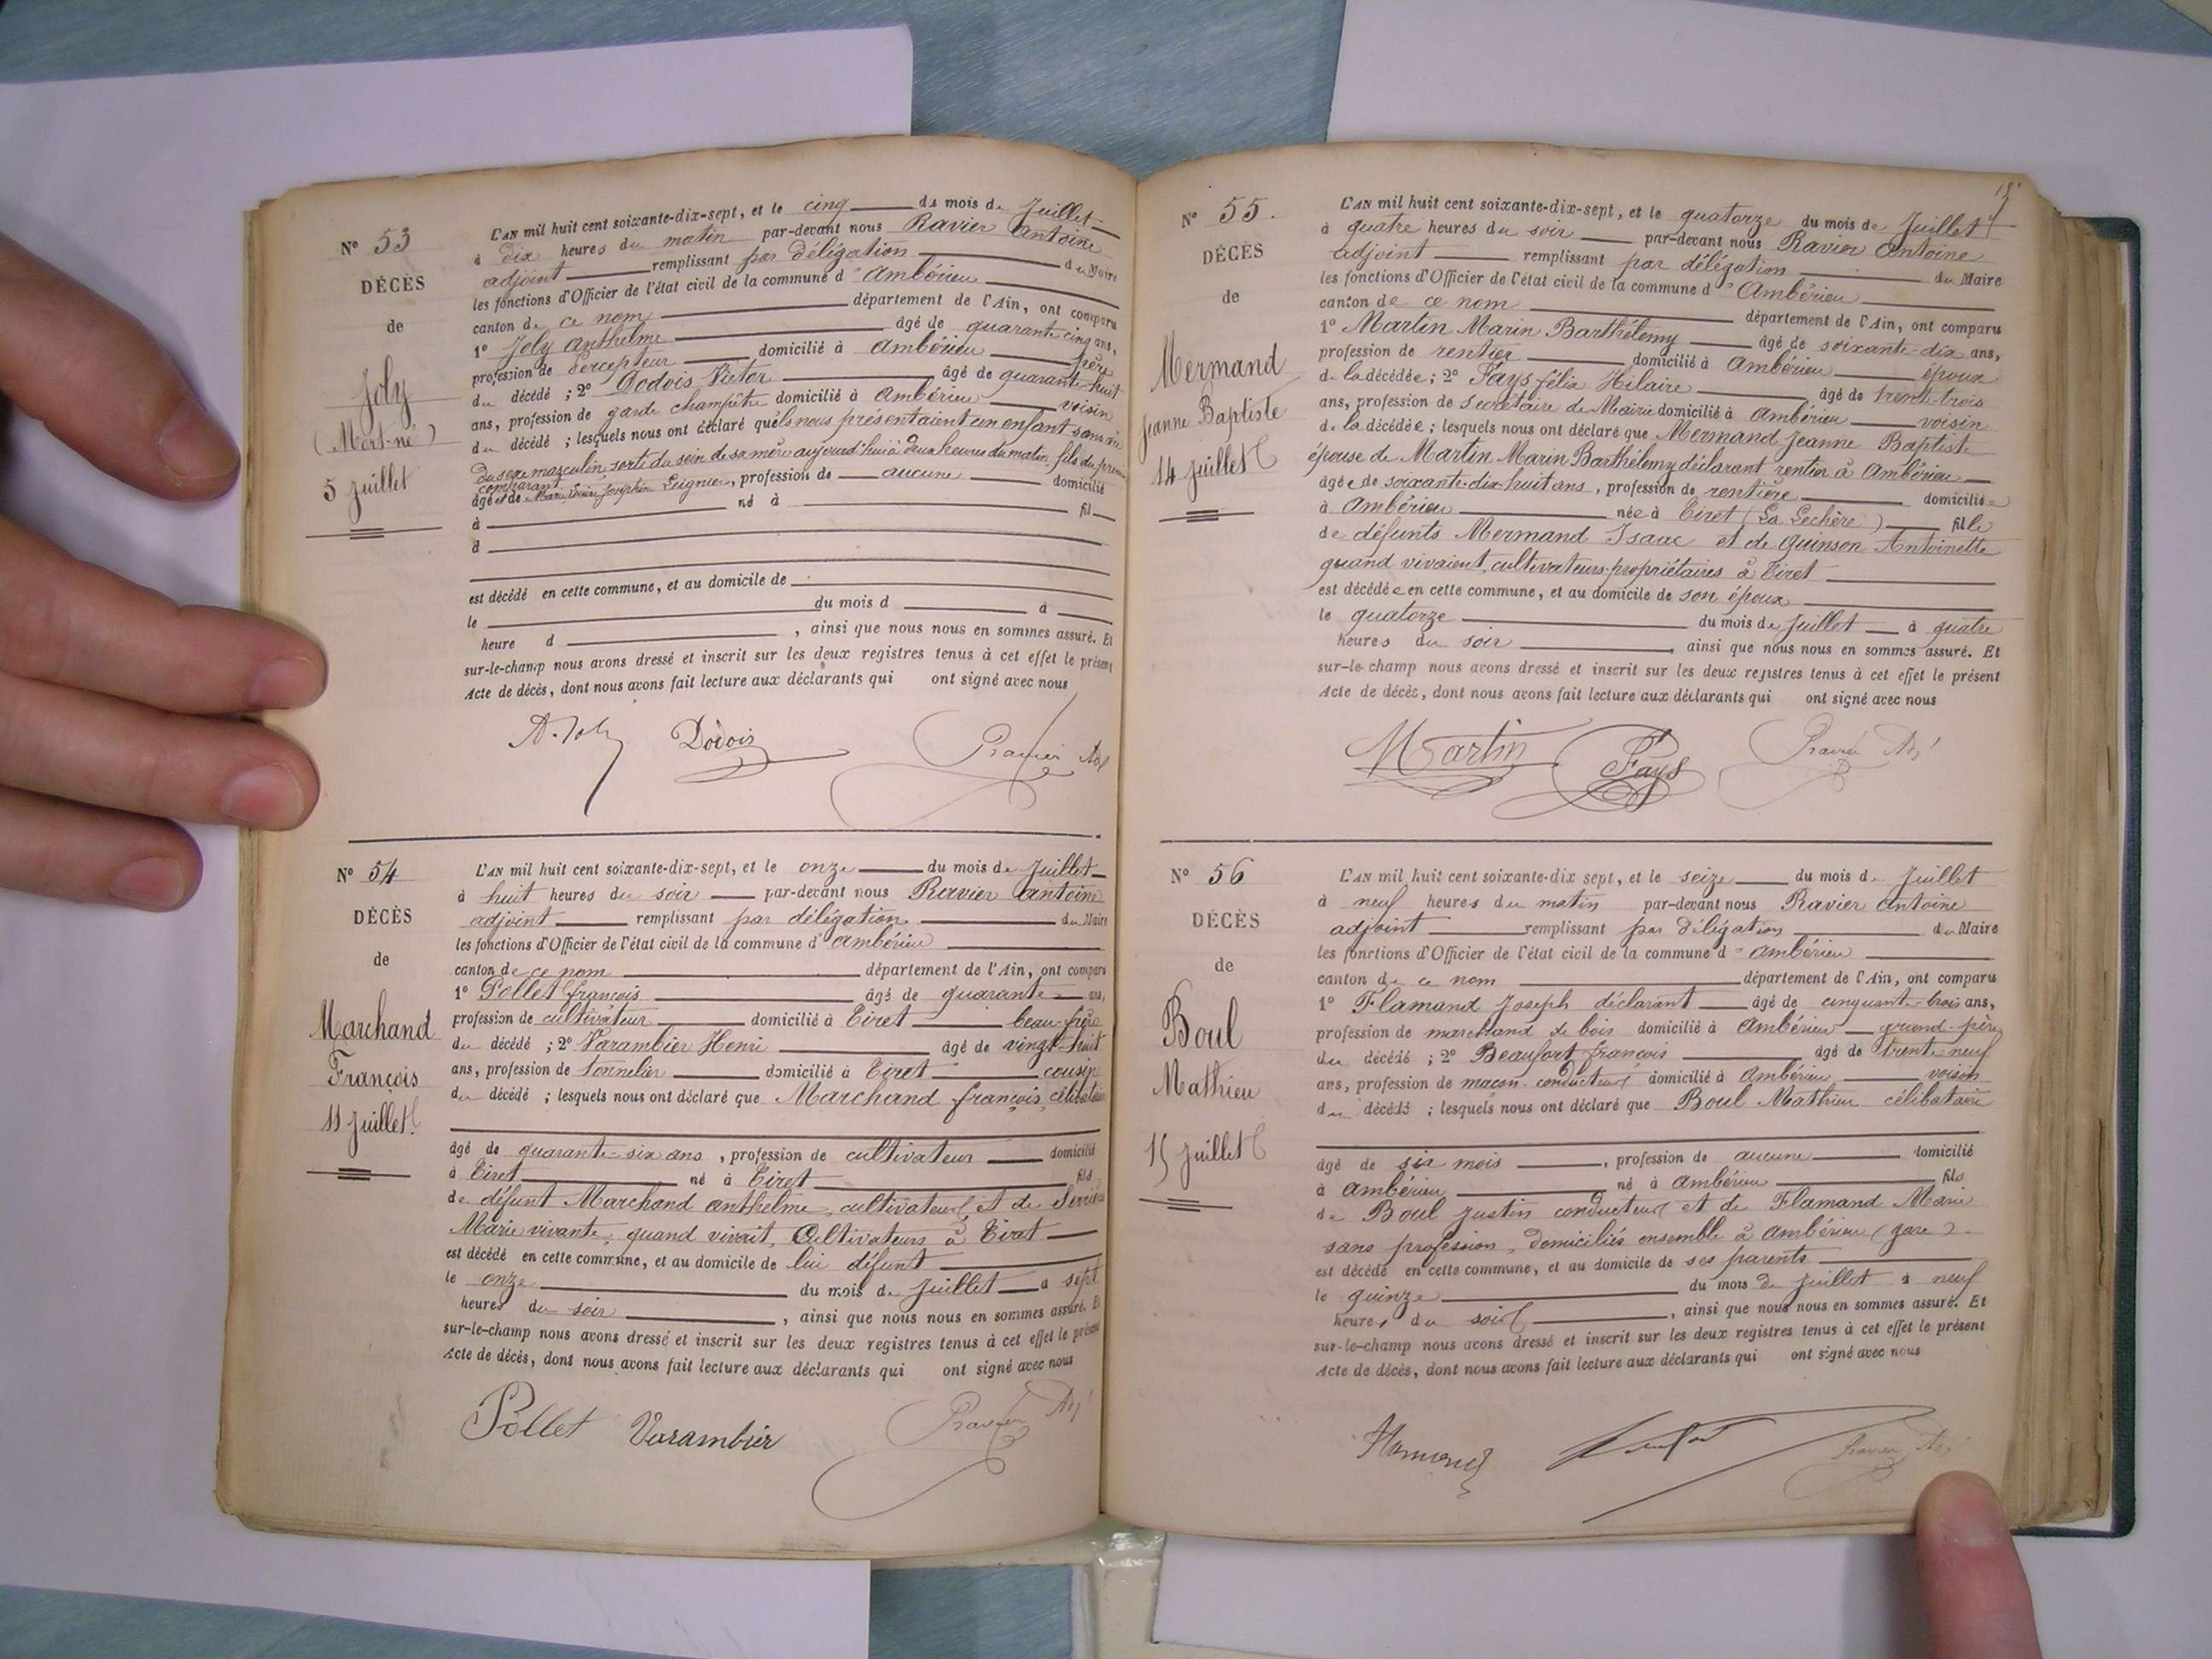 N° 53
DÉCÈS
de
Joly
(Mort-né)
5 Juillet
L'AN mil huit cent soixante-dix-sept, et le cinq du mois de Juillet
à dix heures du matin par-devant nous Ravier Antoine
adjoint remplissant par délégation du Maire
les fonctions d'Officier de l'état civil de la commune d'Ambérieu
canton de ce nom département de l'Ain, ont comparu
1° Joly Anthelme âgé de quarante cinq ans,
profession de Percepteur domicilié à Ambérieu père
du décédé ; 2° Dodois Victor âgé de quarante-huit
ans, profession de garde champêtre domicilié à Ambérieu voisin
du décédé ; lesquels nous ont déclaré qu'ils nous présentaient un enfant sans vie
du sexe masculin, sorti du sein de sa mère aujourd'hui à deux heures du matin, fils du premier
comparant
âgé et de Marie Josephine , profession de aucune domicilié
à né à fil
d
est décédé en cette commune, et au domicile de
le du mois d à
heure d , ainsi que nous nous en sommes assuré. Et
sur-le-champ nous avons dressé et inscrit sur les deux registres tenus à cet effet le présent
Acte de décès, dont nous avons fait lecture aux déclarants qui ont signé avec nous
A. Joly Dodois Ravier Adj
N° 54
DÉCÈS
de
Marchand
François
11 Juillet
L'AN mil huit cent soixante-dix-sept, et le onze du mois de Juillet
à huit heures du soir par-devant nous Ravier Antoine
adjoint remplissant par délégation du Maire
les fonctions d'Officier de l'état civil de la commune d'Ambérieu
canton de ce nom département de l'Ain, ont comparu
1° Pollet françois âgé de quarante ans,
profession de cultivateur domicilié à Tiret beau-frère
du décédé ; 2° Varambier Henri âgé de vingt-huit
ans, profession de tonnelier domicilié à Tiret cousin
du décédé ; lesquels nous ont déclaré que Marchand françois, célibataire
âgé de quarante-six ans , profession de cultivateur domicilié
à Tiret né à Tiret fils
de défunt Marchand anthelme, cultivateur et de
Marie vivante, quand vivait, Cultivateurs à Tiret
est décédé en cette commune, et au domicile de lui défunt
le onze du mois de Juillet à sept
heures du soir , ainsi que nous nous en sommes assuré. Et
sur-le-champ nous avons dressé et inscrit sur les deux registres tenus à cet effet le présent
Acte de décès, dont nous avons fait lecture aux déclarants qui ont signé avec nous
Pollet Varambier Ravier Adj
N° 55.
DÉCÈS
de
Mermand
Jeanne Baptiste
14 Juillet
L'AN mil huit cent soixante-dix-sept, et le quatorze du mois de Juillet
à quatre heures du soir par-devant nous Ravier Antoine
adjoint remplissant par délégation du Maire
les fonctions d'Officier de l'état civil de la commune d'Ambérieu
canton de ce nom département de l'Ain, ont comparu
1° Martin Marin Barthélemy âgé de soixante-dix ans,
profession de rentier domicilié à Ambérieu époux
de la décédée ; 2° Fays félix Hilaire âgé de trente-trois
ans, profession de Secrétaire de Mairie domicilié à Ambérieu voisin
de la décédée ; lesquels nous ont déclaré que Mermand Jeanne Baptiste
épouse de Martin Marin Barthélemy déclarant rentier à Ambérieu
âgée de soixante-dix-huit ans , profession de rentière domiciliée
à Ambérieu née à Tiret (La Léchère) fille
de défunts Mermand Isaac et de Quinson Antoinette
quand vivaient, cultivateurs-propriétaires à Tiret
est décédée en cette commune, et au domicile de son époux
le quatorze du mois de Juillet à quatre
heures du soir , ainsi que nous nous en sommes assuré. Et
sur-le-champ nous avons dressé et inscrit sur les deux registres tenus à cet effet le présent
Acte de décès, dont nous avons fait lecture aux déclarants qui ont signé avec nous
Martin Fays Ravier Adj
N° 56
DÉCÈS
de
Boul
Mathieu
15 Juillet
L'AN mil huit cent soixante-dix sept, et le seize du mois de Juillet
à neuf heures du matin par-devant nous Ravier Antoine
adjoint remplissant par délégation du Maire
les fonctions d'Officier de l'état civil de la commune d'Ambérieu
canton de ce nom département de l'Ain, ont comparu
1° Flamand Joseph déclarant âgé de cinquante-trois ans,
profession de marchand de bois domicilié à Ambérieu grand-père
du décédé ; 2° Beaufort françois âgé de trente-neuf
ans, profession de maçon-conducteur domicilié à Ambérieu voisin
du décédé ; lesquels nous ont déclaré que Boul Mathieu célibataire
âgé de six mois , profession de aucune domicilié
à Ambérieu né à Ambérieu fils
de Boul Justin conducteur et de Flamand Marie
sans profession, domiciliés ensemble à Ambérieu (gare)
est décédé en cette commune, et au domicile de ses parents
le quinze du mois de Juillet à neuf
heures du soir , ainsi que nous nous en sommes assuré. Et
sur-le-champ nous avons dressé et inscrit sur les deux registres tenus à cet effet le présent
Acte de décès, dont nous avons fait lecture aux déclarants qui ont signé avec nous
Flamand Ravier Adj